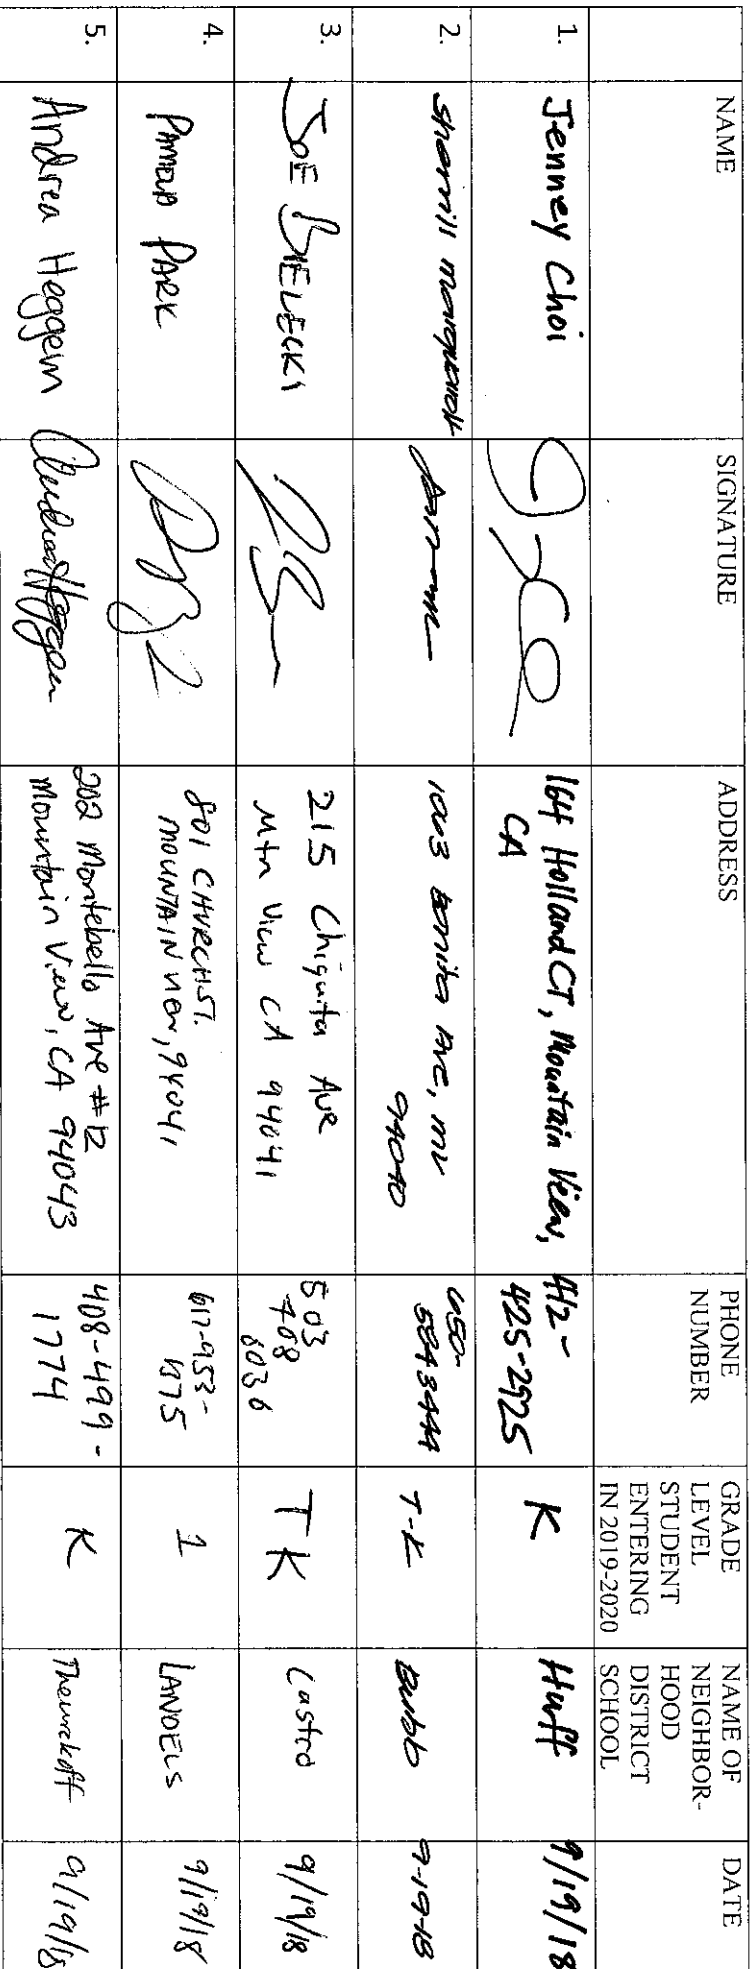 NAME
SIGNATURE
ADDRESS
PHONE NUMBER
GRADE LEVEL STUDENT ENTERING IN 2019-2020
NAME OF NEIGHBOR-HOOD DISTRICT SCHOOL
DATE
1.
Jenney Choi
164 Holland CT, Mountain View,
CA
412-
425-2925
K
Huff
9/19/18
2.
Sherrill
1063 Bonita Ave, MV
94040
650-
T-K
Bubb
9-19-18
3.
JOE BIELECKI
215 Chiquita Ave
Mtn View CA 94041
503
708
6036
TK
Castro
9/19/18
4.
PARK
801 CHURCH ST.
MOUNTAIN VIEW, 94041
617-953-
1
LANDELS
9/19/18
5.
Andrea Heggem
Andrea Heggem
202 Montebello Ave #12
Mountain View, CA 94043
408-499-
1774
K
Theuerkoff
9/19/18